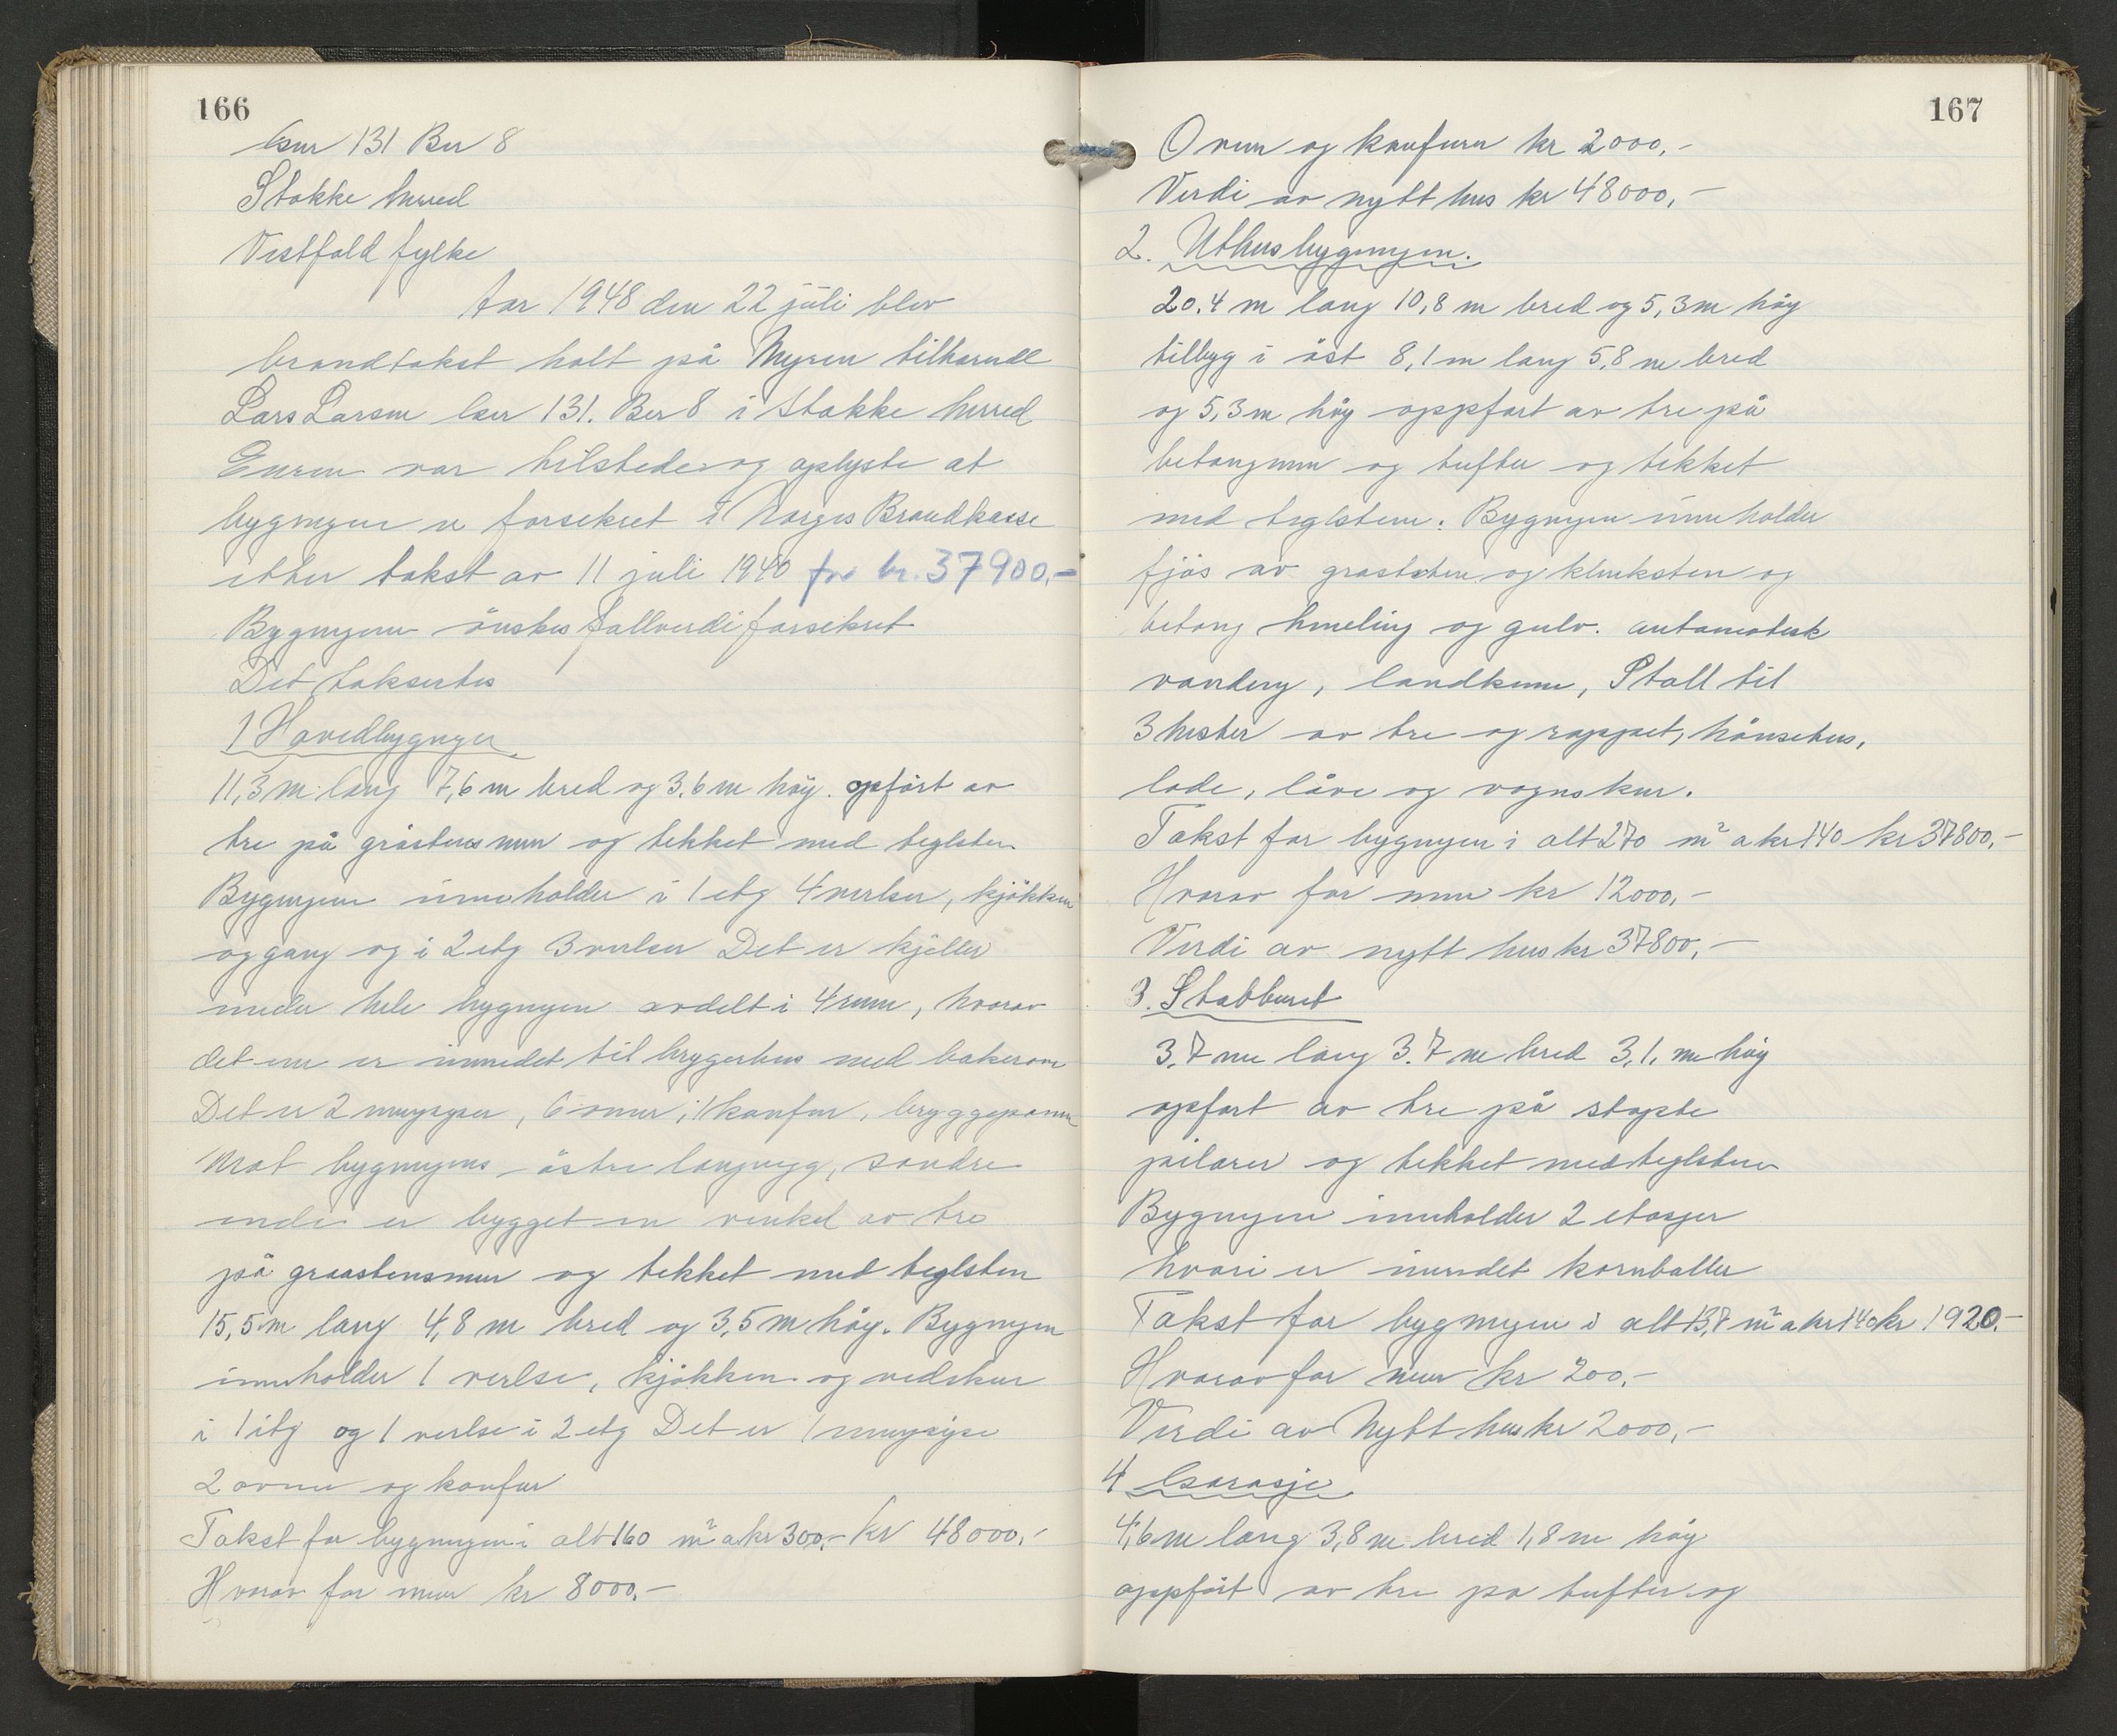 166
Gnr 131 Bnr 8
Stokke herred
Vestfold fylke
Aar 1948 den 22 juli blev
brandtakst holt på Myren tilhørende
Lars Larsen Gnr 131. Bnr 8 i Stokke herred
Eieren var tilstede og oplyste at
bygningene er forsikret i Norges Brandkasse
etter takst av 11 juli 1940 for kr. 37900,-
Bygningene önskes fullverdiforsikret
Det taksertes
1 Hovedbygningen
11,3 m lang 7,6 m bred og 3,6 m höy. opfört av
tre på gråstensmur og tekket med teglsten
Bygningen inneholder i 1 etg 4 verelser, kjökken
og gang og i 2 etg 3 verelser Det er kjeller
under hele bygningen avdelt i 4 rum, hvorav
det ene er innredet til bryggerhus med bakerovn
Det er 2 murpiper, 6 ovner, 1 komfur, bryggepanne
Mot bygningens östre langvegg, sondre
ende er bygget en vinkel av tre
på graastensmur og tekket med teglsten
15,5 m lang 4,8 m bred og 3,5 m höy. Bygningen
inneholder 1 verelse, kjökken og vedskur
i 1 etg og 1 verelse i 2 etg Det er 1 murpipe
2 ovner og komfur
Takst for bygningen i alt 160 m² a kr 300,- kr 48000,-
Hvorav for mur kr 8000,-
167
Ovner og komfurer kr 2000,-
Verdi av nytt hus kr 48000,-
2. Uthusbygningen.
20,4 m lang 10,8 m bred og 5,3 m höy
tilbyg i öst 8,1 m lang 5,8 m bred
og 5,3 m höy oppfört av tre på
betongmur og tufter og tekket
med teglstein. Bygningen inneholder
fjös av graasten og klinksten og
betong himeling og gulv. automatisk
vanding, landkum, Stall til
3 hester av tre og rappet, hönsehus,
lade, låve og vognskur.
Takst for bygningen i alt 270 m² a kr 140 kr 37800,-
Hvorav for mur kr 12000,-
Verdi av nytt hus kr 37800,-
3. Stabburet
3,7 m lang 3.7 m bred 3,1, m höy
opfört av tre på stöpte
pilarer og tekket med teglsten
Bygningen inneholder 2 etasjer
hvori er innredet kornballer
Takst for bygningen i alt 13,7 m² a kr 140 kr 1920.-
Hvorav for mur kr 200,-
Verdi av Nytt hus kr 2000,-
4 Garasje
4,6 m lang 3,8 m bred 1,8 m höy
oppfört av tre på tufter og